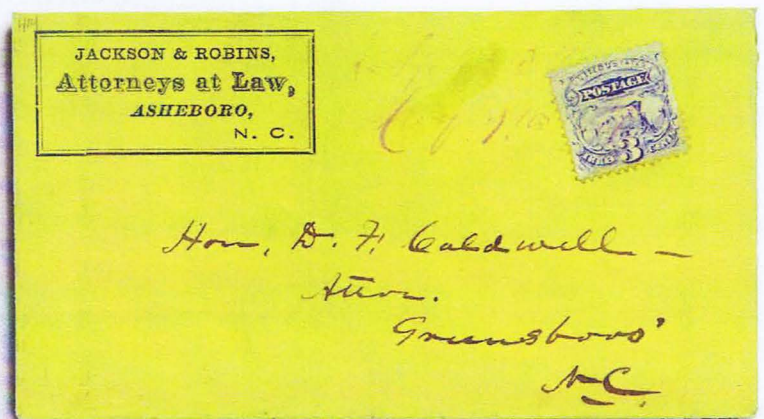 JACKSON & ROBINS,
Attorneys at Law,
ASHEBORO,
N. C.
POSTAGE
3
Hon. D. F. Caldwell –
Attor.
Greensboro'
N.C.